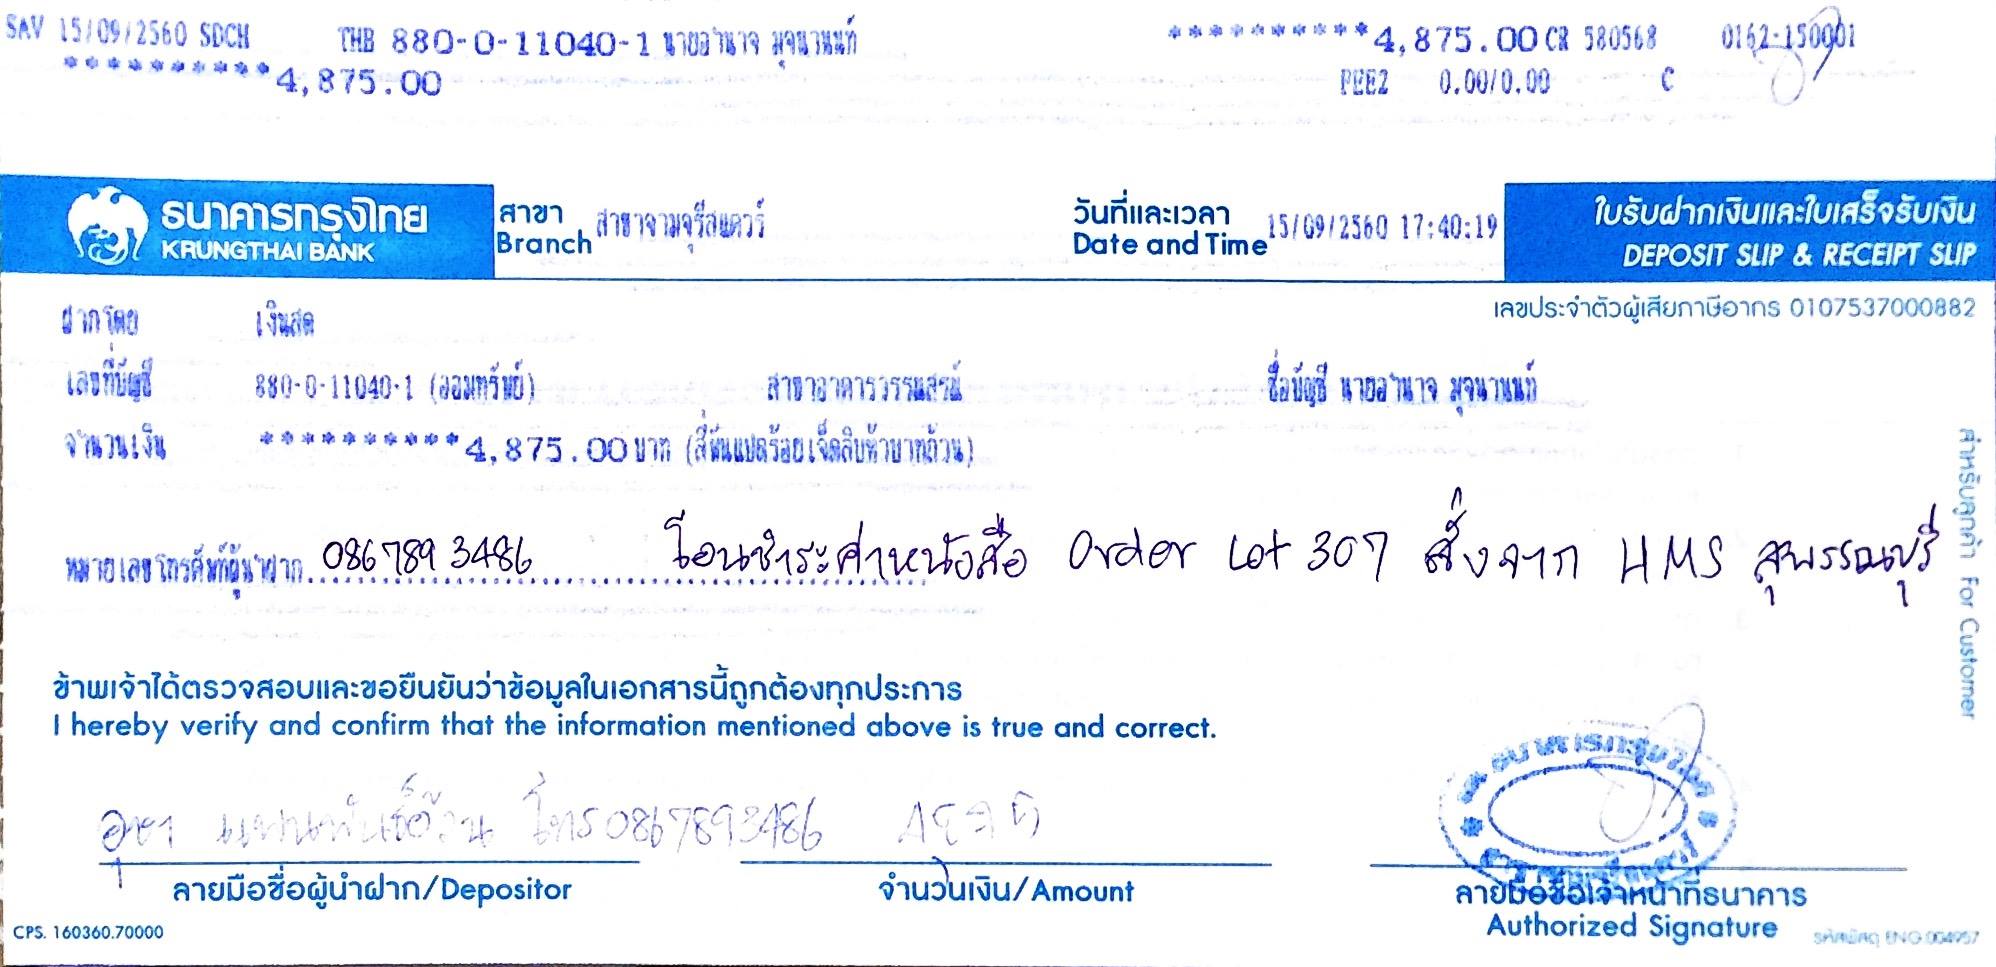 SAV 15/09/2560 SDCH THB 880-0-11040-1 นายอำนาจ มุจนานนท์ **********4,875.00 CR 580568 0162-150001
**********4,875.00 FEE2 0.00/0.00 C
ธนาคารกรุงไทย
KRUNGTHAI BANK
สาขา
Branch สาขาจามจุรีสแควร์
วันที่และเวลา
Date and Time 15/09/2560 17:40:19
ใบรับฝากเงินและใบเสร็จรับเงิน
DEPOSIT SLIP & RECEIPT SLIP
เลขประจำตัวผู้เสียภาษีอากร 0107537000882
ฝากโดย เงินสด
เลขที่บัญชี 880-0-11040-1 (ออมทรัพย์) สาขาอาคารวรรณสรณ์ ชื่อบัญชี นายอำนาจ มุจนานนท์
จำนวนเงิน **********4,875.00 บาท (สี่พันแปดร้อยเจ็ดสิบห้าบาทถ้วน)
หมายเลขโทรศัพท์ผู้นำฝาก 0867893486 โอนชำระค่าหนังสือ Order Lot 307 สั่งจาก HMS สุพรรณบุรี
สำหรับลูกค้า For Customer
ข้าพเจ้าได้ตรวจสอบและขอยืนยันว่าข้อมูลในเอกสารนี้ถูกต้องทุกประการ
I hereby verify and confirm that the information mentioned above is true and correct.
โทร 0867893486
ลายมือชื่อผู้นำฝาก/Depositor
จำนวนเงิน/Amount
ลายมือชื่อเจ้าหน้าที่ธนาคาร
Authorized Signature
CPS. 160360.70000
รหัสพัสดุ ENG 004957